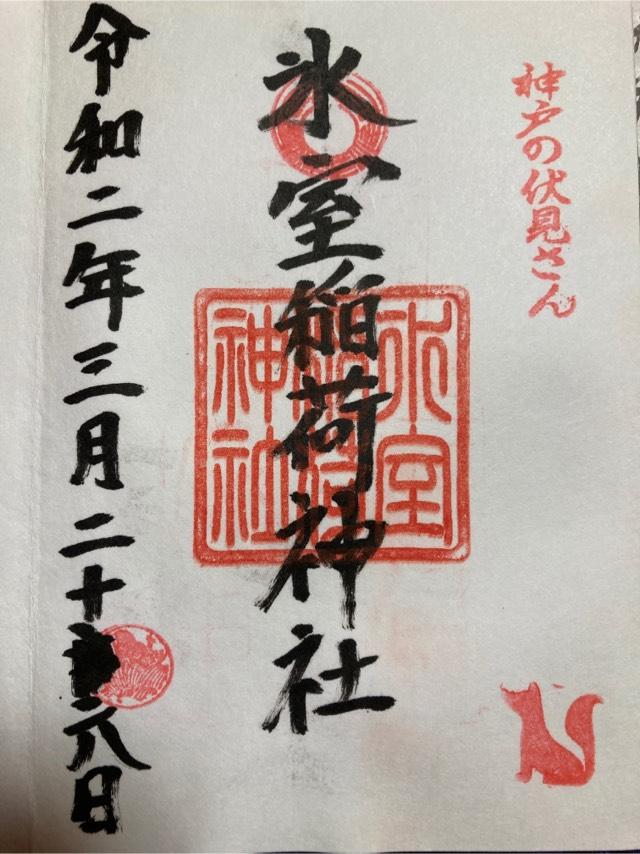 神戸の伏見さん
氷室稲荷神社
氷室
神社
令和二年三月二十六日